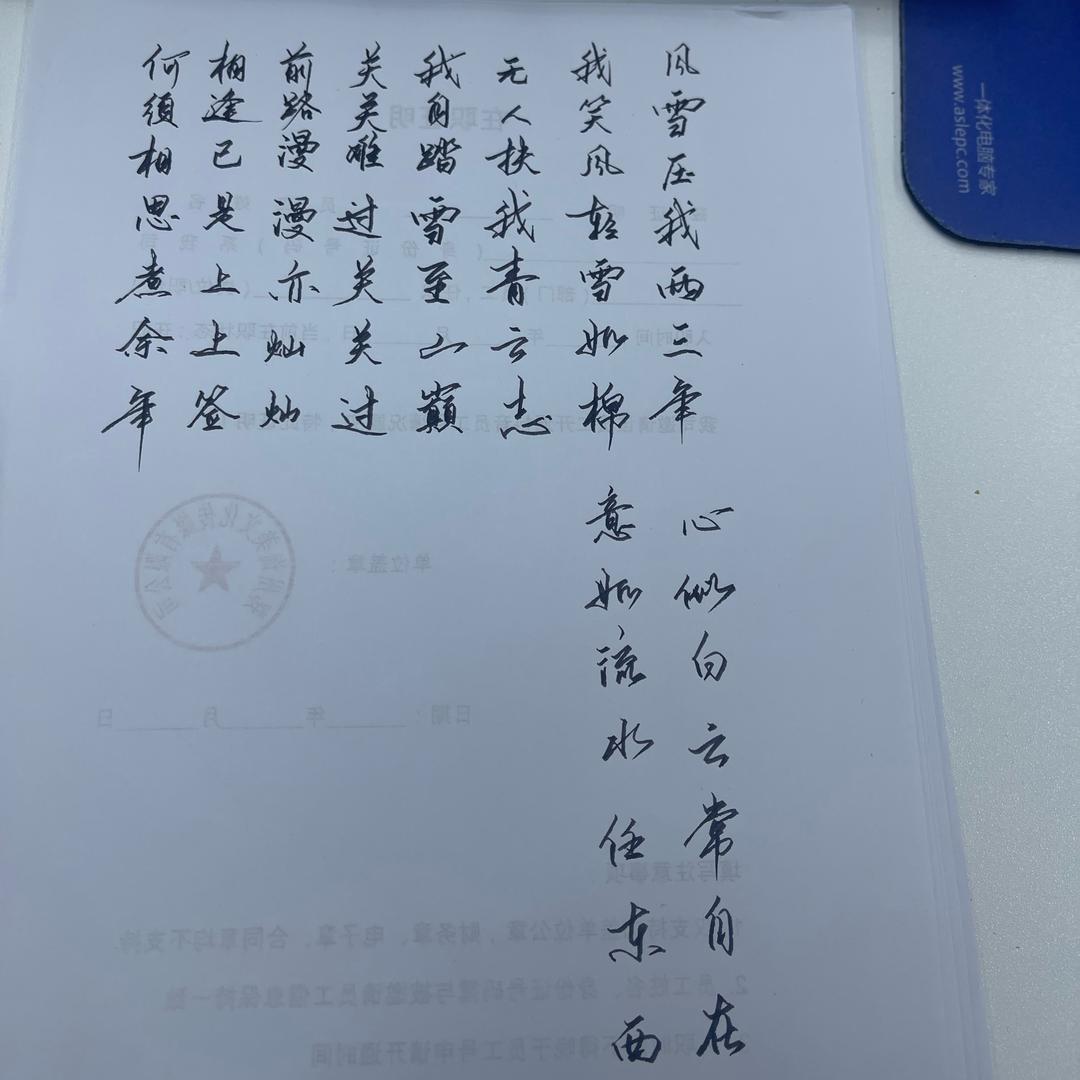 风雪压我两三年
我笑风轻雪如棉
无人扶我青云志
我自踏雪至山巅
关关难过关关过
前路漫漫亦灿灿
相逢已是上上签
何须相思煮余年
心似白云常自在
意如流水任东西
一体化电脑专家
www.aslepc.com
在职证明
单位盖章：
日期：年月日
填写注意事项